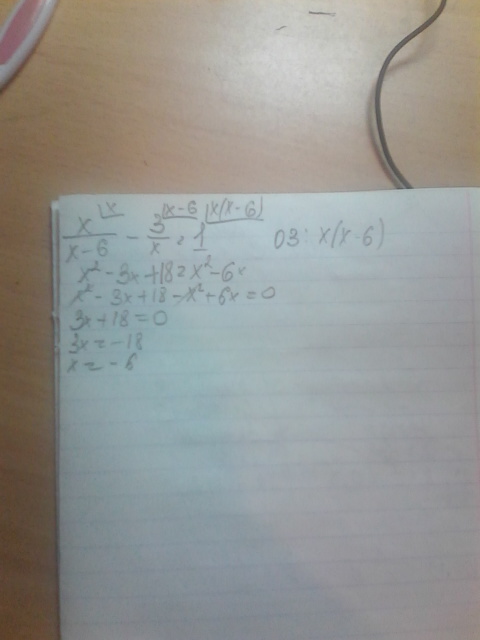 x/(x-6) |x - 3/x |x-6 = 1 |x(x-6) ОЗ: x(x-6)
x² - 3x + 18 = x² - 6x
x² - 3x + 18 - x² + 6x = 0
3x + 18 = 0
3x = -18
x = -6